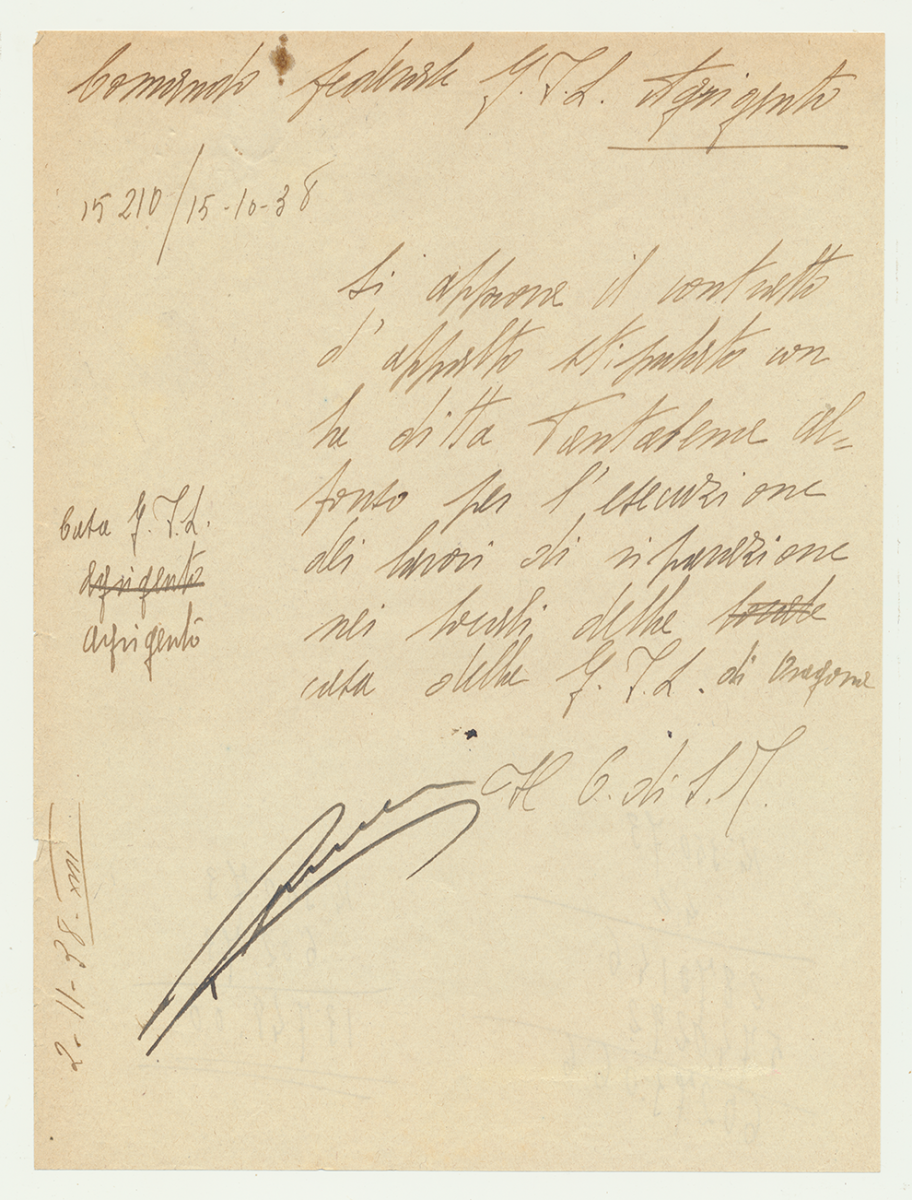 Comando federale G.I.L. Agrigento
15210/15-10-38
Si appone il contratto
d'appalto stipulato con
la ditta Tantaleme Al=
fonso per l'esecuzione
dei lavori di riparazione
nei locali della locale
casa della G.I.L. di Aragona
Casa G.I.L.
Agrigento
Agrigento
Il C. di S.M.
2-11-38-XVII